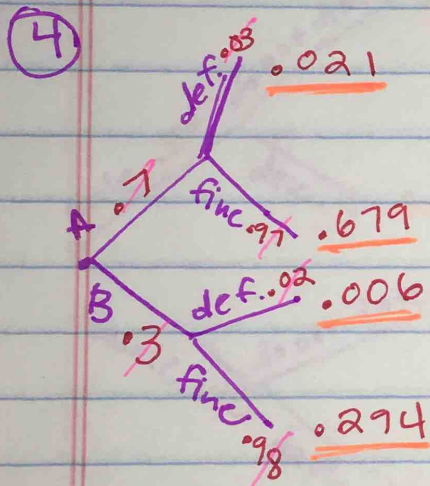 4
.03
def.
.021
A
.7
fine
.97
.679
B
.3
def.
.02
.006
fine
.98
.294